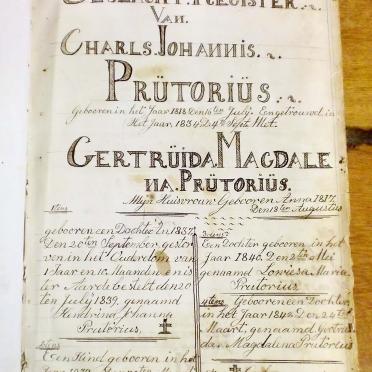 GESLACHT. REGISTER.
VAN.
CHARLS. IOHANNIS.
PRÜTORIÜS.
Geboren in het Jaar 1818 Den 16ten July. En getrouwd. in
Het Jaar. 1834. D. 4de Septr. Met.
GERTRÜIDA. MAGDALE
NA. PRÜTORIÜS.
Myn Huisvrouw Geboren Anna 1817.
Den 18ter Augustus
1tens
geboren een Dochter in 1837
Den 20ten September. gestor
ven in het Ouderdom van
1 Jaar en 10. Maanden en is
ter Aarde bestelt den 20
ten July 1839. genaamd
Hendrina Johanna
Prutorius.
Een Kind geboren in het
3tens
Een Dochter geboren in het
Jaar 1840. Den 2ten Mei
genaamd Lowiesa Maria
Prutorius.
4tens Geboren een Dochter
in het Jaar 1842 Den 24ste
Maart. genaamd Gertrui
da Magdalena Prutorius